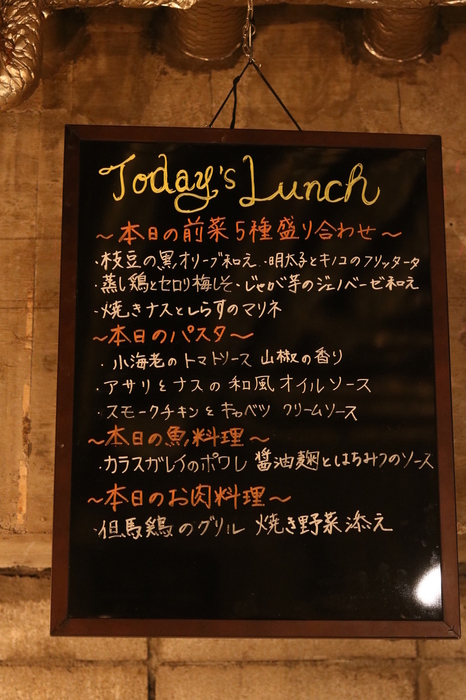 Today's Lunch
～本日の前菜5種盛り合わせ～
・枝豆の黒オリーブ和え ・明太子とキノコのフリッタータ
・蒸し鶏とセロリ梅しそ ・じゃが芋のジェノベーゼ和え
・焼きナスとしらすのマリネ
～本日のパスタ～
・小海老のトマトソース 山椒の香り
・アサリとナスの和風オイルソース
・スモークチキンとキャベツ クリームソース
～本日の魚料理～
・カラスガレイのポワレ 醤油麹とはちみつのソース
～本日のお肉料理～
・但馬鶏のグリル 焼き野菜添え